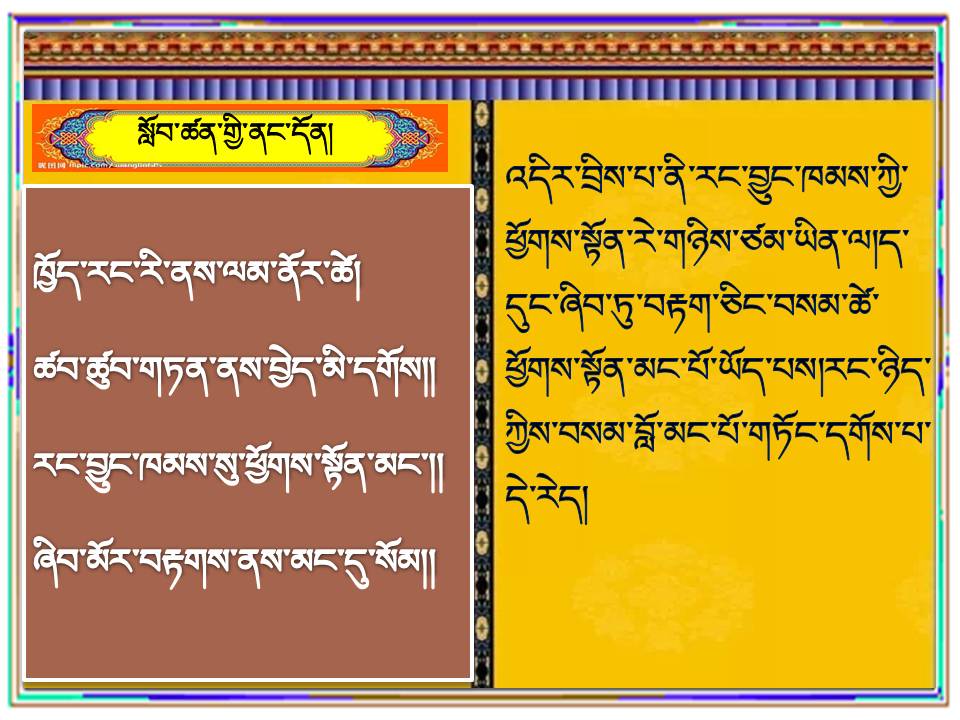 སློབ་ཚན་གྱི་ནང་དོན།
ཁྱོད་རང་རི་ནས་ལམ་ནོར་ཚེ།
ཚབ་ཚུབ་གཏན་ནས་བྱེད་མི་དགོས།།
རང་བྱུང་ཁམས་སུ་ཕྱོགས་སྟོན་མང་།།
ཞིབ་མོར་བརྟགས་ནས་མང་དུ་སོམ།།
འདིར་བྲིས་པ་ནི་རང་བྱུང་ཁམས་ཀྱི་
ཕྱོགས་སྟོན་རེ་གཉིས་ཙམ་ཡིན་ལ།ད་
དུང་ཞིབ་ཏུ་བརྟག་ཅིང་བསམ་ཚེ་
ཕྱོགས་སྟོན་མང་པོ་ཡོད་པས།རང་ཉིད་
ཀྱིས་བསམ་བློ་མང་པོ་གཏོང་དགོས་པ་
དེ་རེད།